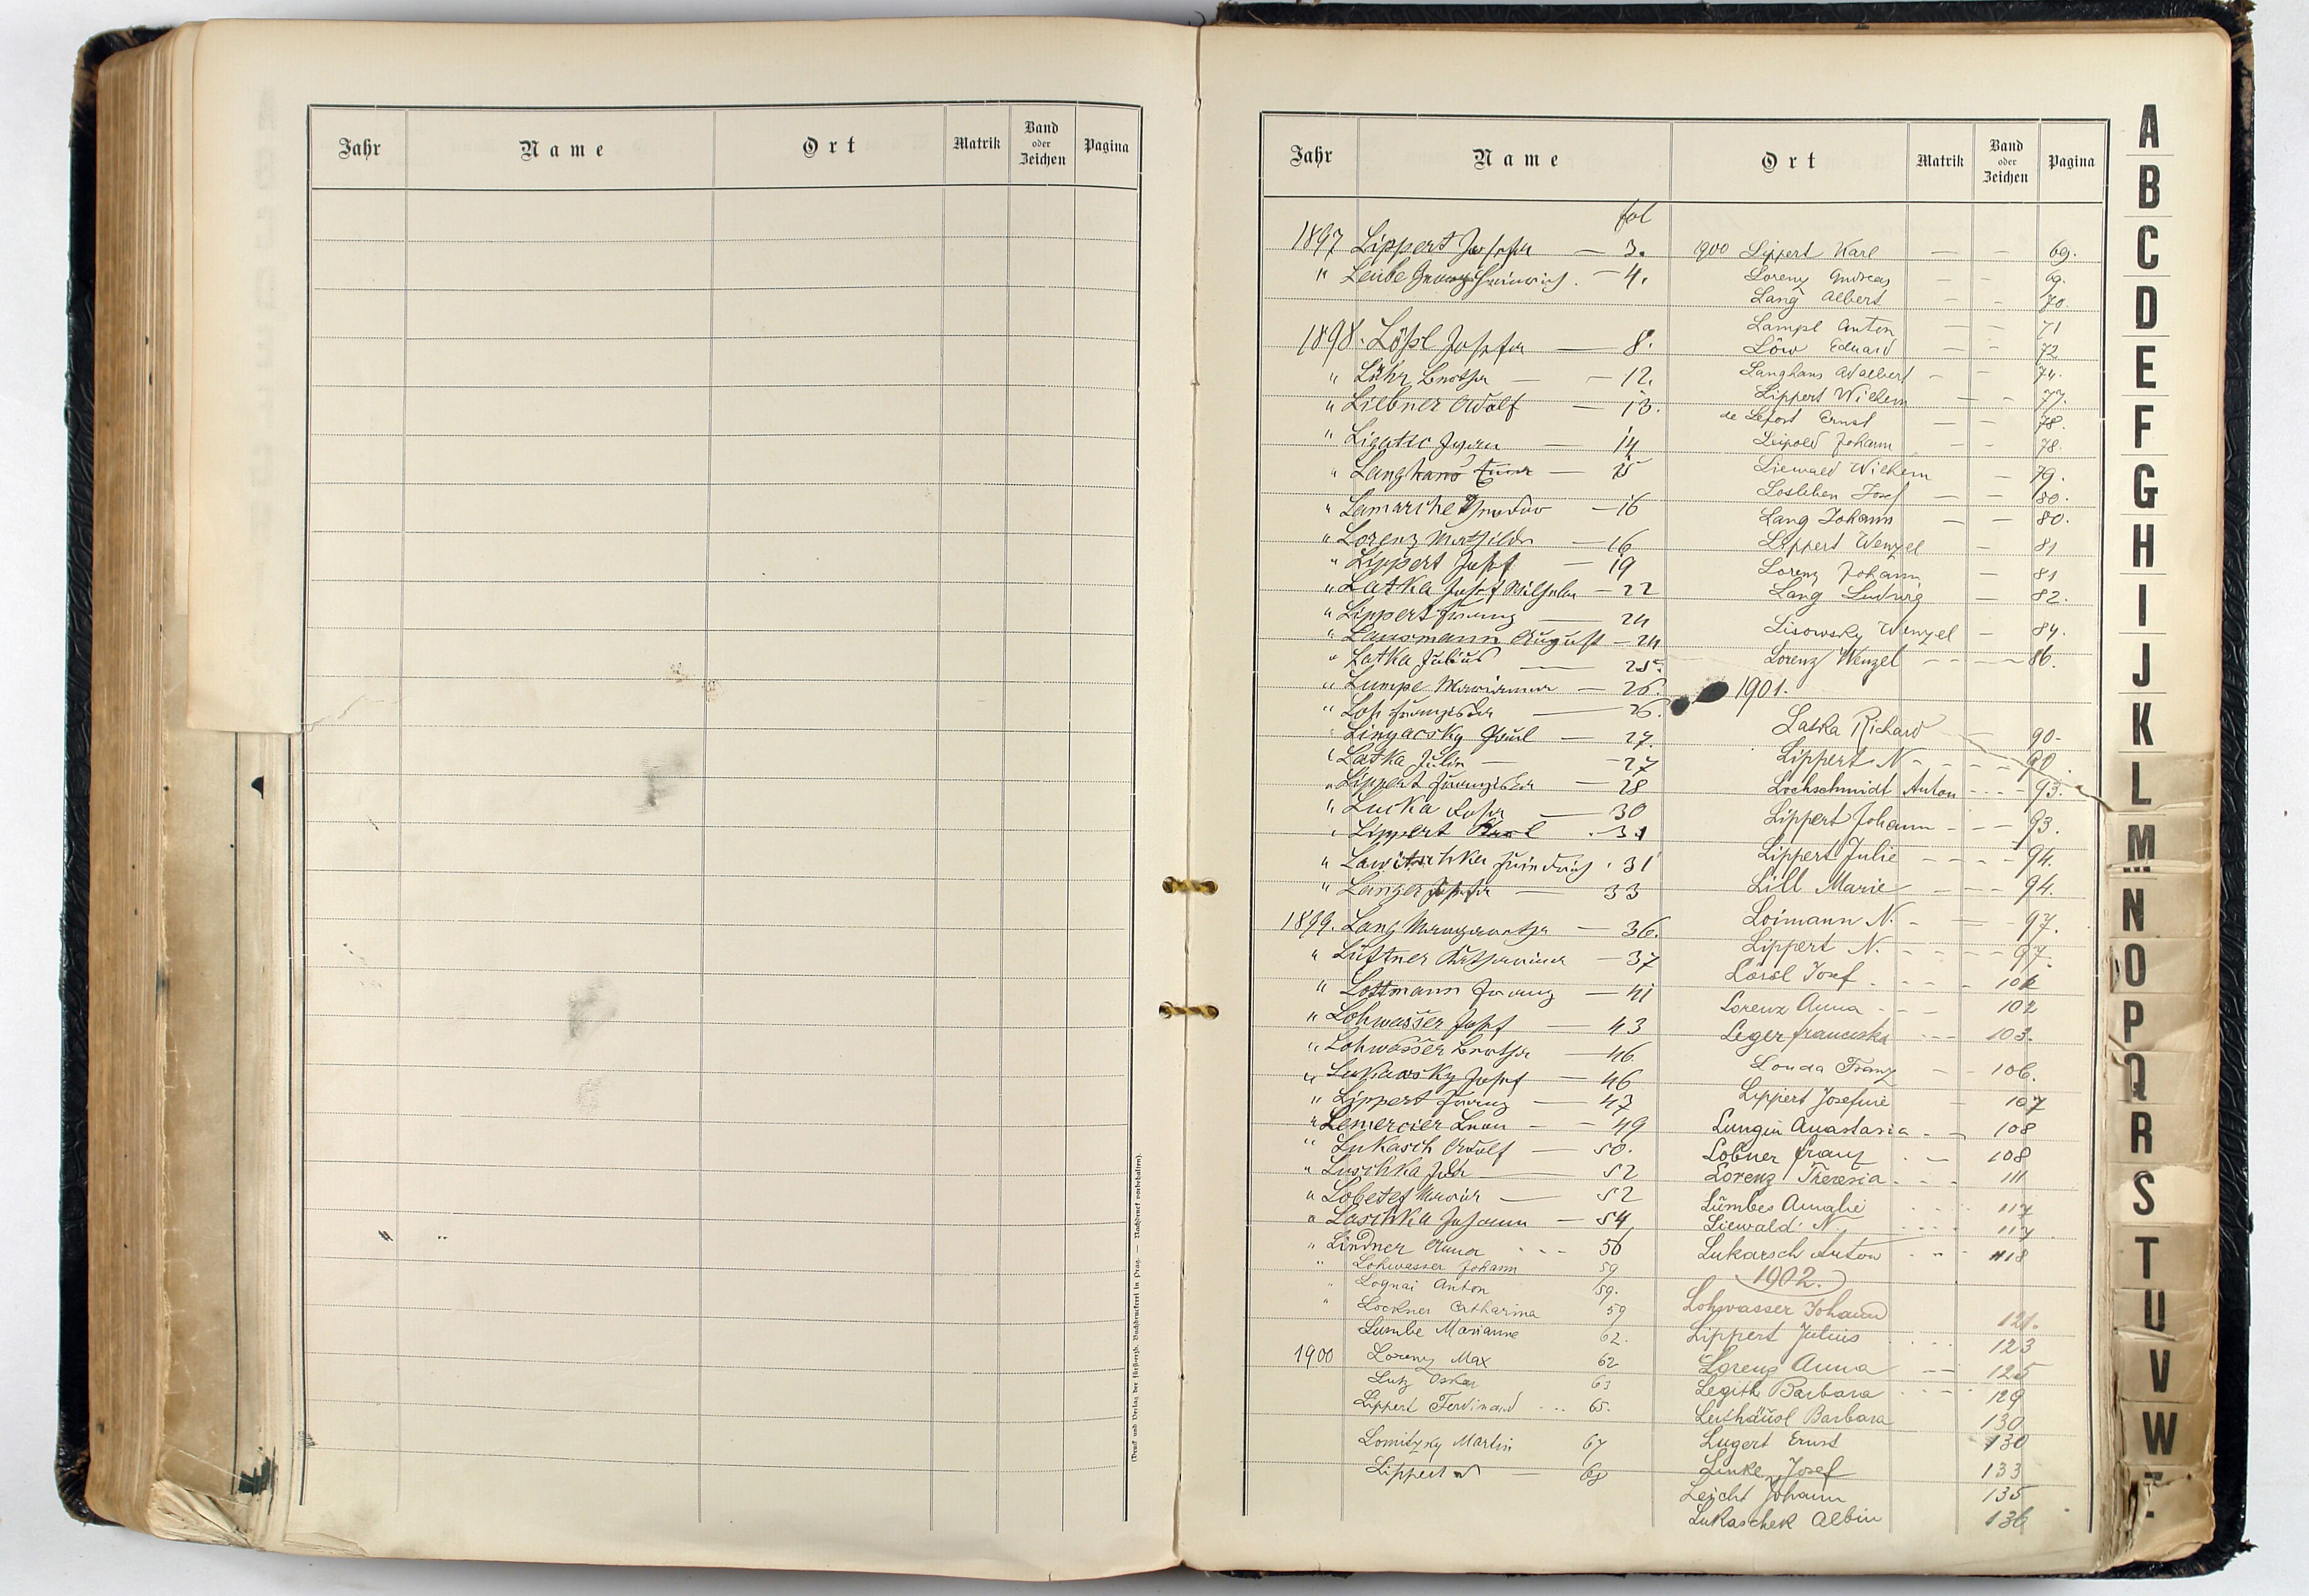 Jahr Name Ort Matrik Band oder Zeichen Pagina
(Druck und Verlag der fürsterzb. Buchdruckerei in Prag. — Nachdruck vorbehalten).
Jahr Name Ort Matrik Band oder Zeichen Pagina
fol
1897 Lippert Josefa — 3.
" Leube Heinrich. — 4.
1898. Lößl Josefa — 8.
" Lühr — 12.
" Liebner Adolf — 13.
" 14
" Langhans — 15
" Lamarche Theodor — 16
" Lorenz Mathilde — 16
" Lippert Josef — 19
" Latka Josef Wilhelm — 22
" Lippert Franz — 24
" Lausmann August — 24
" Latka Julius — 25.
" Lumpe Marianna — 26.
" Loh Franziska — 26.
" 27.
" Latka Julia — 27
" Lippert Franziska — 28
" Lucka — 30
" Lippert Karl . 31
" Lawitschka Friedrich . 31
" Langer Josefa — 33
1899. Lang Margaretha — 36.
" Lüftner Katharina — 37
" Lottmann Franz — 41
" Lohwasser Josef — 43
" Lohwasser — 46.
" Lukawsky Josef — 46
" Lippert Franz — 47
" Lemercier Leon — 49
" Lukasch Adolf — 50.
" Luschka — 52
" Lobetet Maria — 52
" Laschka Johann — 54
" Lindner Anna - - - 56
" Lohwasser Johann 59
" Lognai Anton 59.
" Lockner Catharina 59
Lumbe Marianne 62.
1900 Lorenz Max 62
Lutz Oskar 63
Lippert Ferdinand - - - 65.
Lomitzky Martin 67
Lippert N — 68
1900 Lippert Karl — — 69.
Lorenz Andreas — — 69.
Lang Albert — — 70.
Lampl Anton — — 71
Löw Eduard — — 72
Langhans Adalbert — — 74.
Lippert Wilhelm — — 77.
de Lefort Ernst — — 78.
Leipold Johann — — 78.
Liewald Wilhelm — 79.
Losleben Josef — — 80.
Lang Johann — — 80.
Lippert Wenzel — 81
Lorenz Johann — 81
Lang Ludwig — 82.
Lisowsky Wenzel — 84.
Lorenz Wenzel — — — 86.
1901.
Latka Richard — 90.
Lippert N - - - - 90.
Lochschmidt Anton - - - 93.
Lippert Johann - - - 93.
Lippert Julie - - - - 94.
Lill Marie - - - 94.
Loimann N. - — 97.
Lippert N. - - - - 97.
Lörsl Josef - - - 102
Lorenz Anna - - - 102
Leger Franciska - - - 103.
Louda Franz - - 106.
Lippert Josefine - 107
Lungiu Anastasia - - 108
Löbner Franz . — 108
Lorenz Theresia . - . 111
Lümbes Amalie 117
Liewald N. 117
Lukarsch Anton 118
1902.
Lohwasser Johann 121.
Lippert Julius 123
Lorenz Anna — — 125
Legith Barbara 129
Leithäusl Barbara 130
Lugert Ernst 130
Linke Josef 133
Leicht Johann 135
Lukaschek Albin 136
A
B
C
D
E
F
G
H
I
J
K
L
M
N
O
P
Q
R
S
T
U
V
W